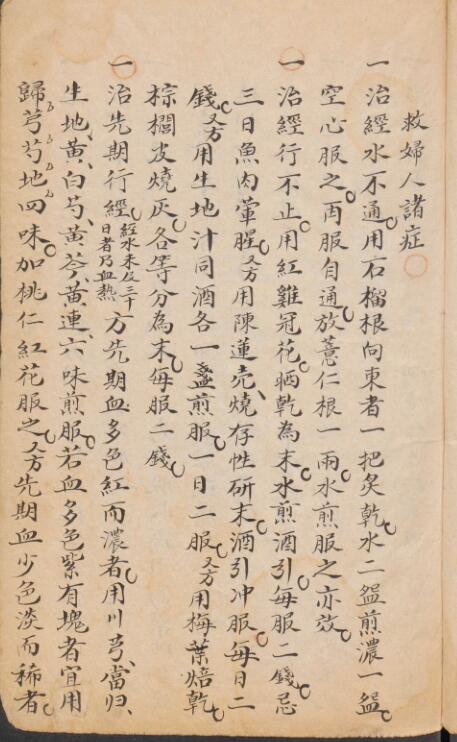 救婦人諸症
一治經水不通用石榴根向東者一把炙乾水二盌煎濃一盌
空心服之両服自通放薏仁根一兩水煎服之亦效
一治經行不止用紅雞冠花晒乾為末水煎酒引每服二錢忌
三日魚肉葷腥又方用陳蓮壳燒存性研末酒引冲服每日二
錢又方用生地汁同酒各一盞煎服一日二服又方用梅葉焙乾
棕櫚皮燒灰各等分為末每服二錢
一治先期行經經水未及三十日者乃血熱方先期血多色紅而濃者用川芎、當归、
生地、黄、白芍、黄芩、黄連、六味煎服若血多色紫有塊者宜用
歸芎芍地四味加桃仁紅花服之又方先期血少色淡而稀者